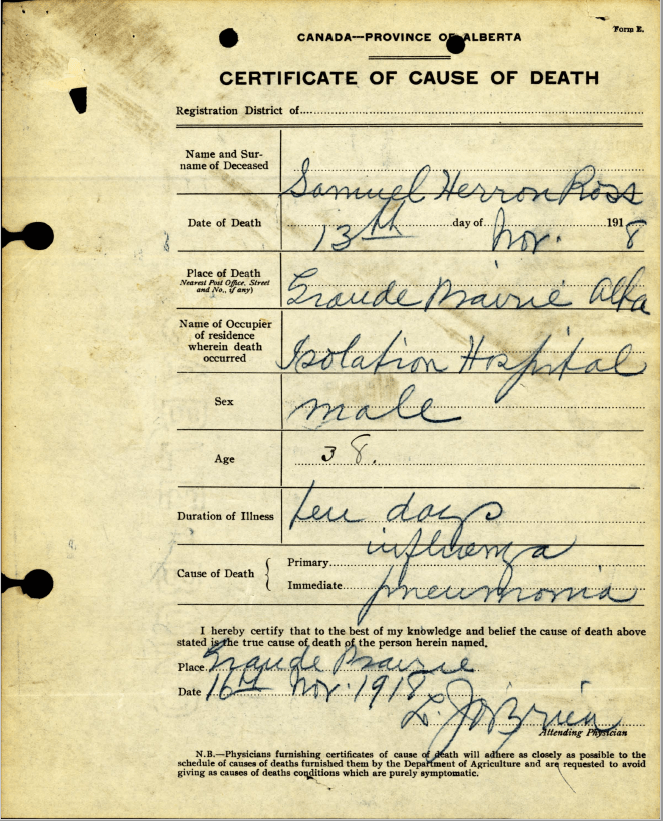 Form E.
CANADA—PROVINCE OF ALBERTA
CERTIFICATE OF CAUSE OF DEATH
Registration District of
Name and Sur-
name of Deceased
Samuel Herron Ross
Date of Death 13th day of Nov. 1918
Place of Death
Nearest Post Office, Street
and No., if any)
Grande Prairie Alta
Name of Occupier
of residence
wherein death
occurred
Isolation Hospital
Sex male
Age 38.
Duration of Illness ten days
Cause of Death { Primary influenza
Immediate pneumonia
I hereby certify that to the best of my knowledge and belief the cause of death above
stated is the true cause of death of the person herein named.
Place Grande Prairie
Date 16th Nov. 1918
L. J. O'Brien
Attending Physician
N.B.—Physicians furnishing certificates of cause of death will adhere as closely as possible to the
schedule of causes of deaths furnished them by the Department of Agriculture and are requested to avoid
giving as causes of deaths conditions which are purely symptomatic.